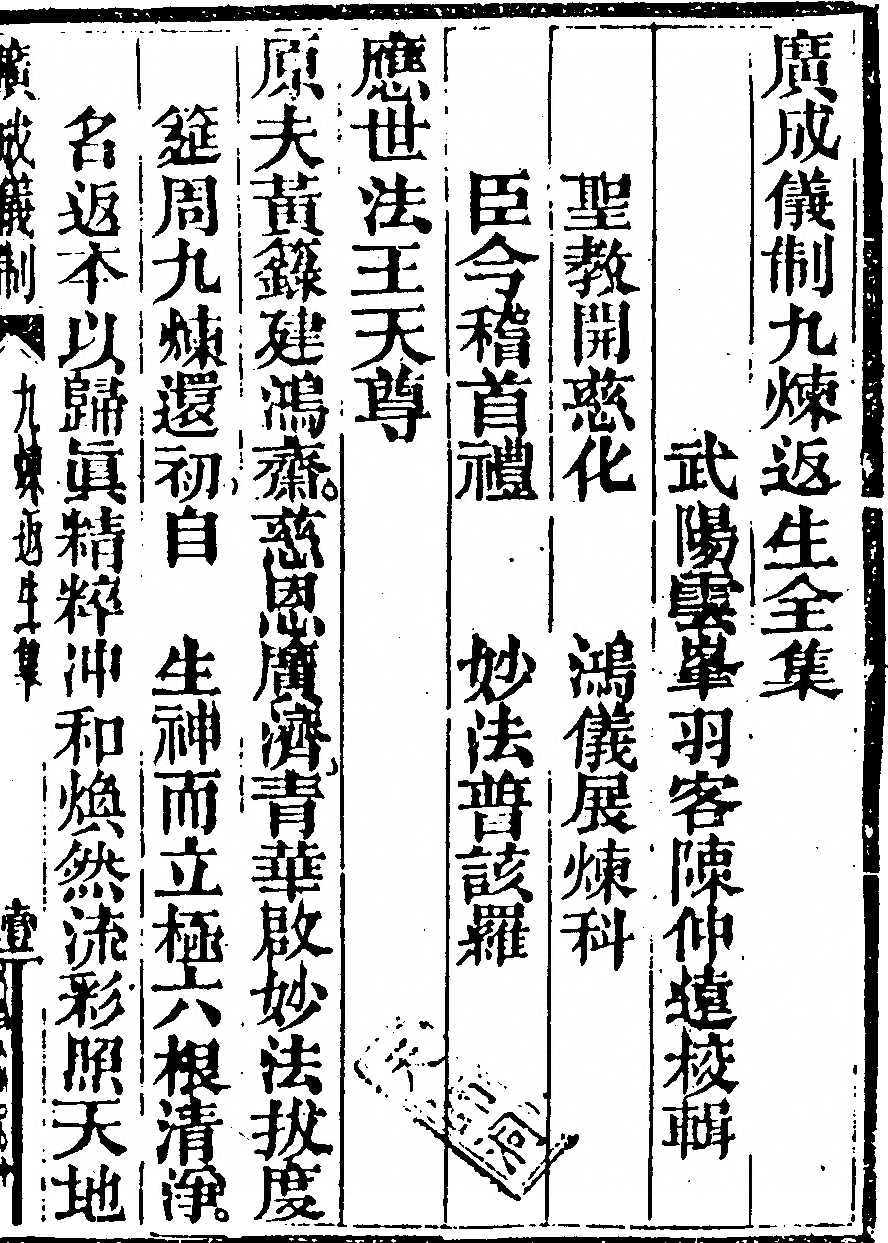 廣成儀制九煉返生全集
武陽雲峯羽客陳仲遠校輯
聖教開慈化　鴻儀展煉科
臣今稽首禮　妙法普該羅
應世法王天尊
原夫黃籙建鴻齋。慈恩廣濟、青華啟妙法拔度
筵周九煉還初、自　生神而立極六根清淨。
名返本以歸眞精粹沖和煥然流彩照天地
廣成儀制　九煉返生集　壹